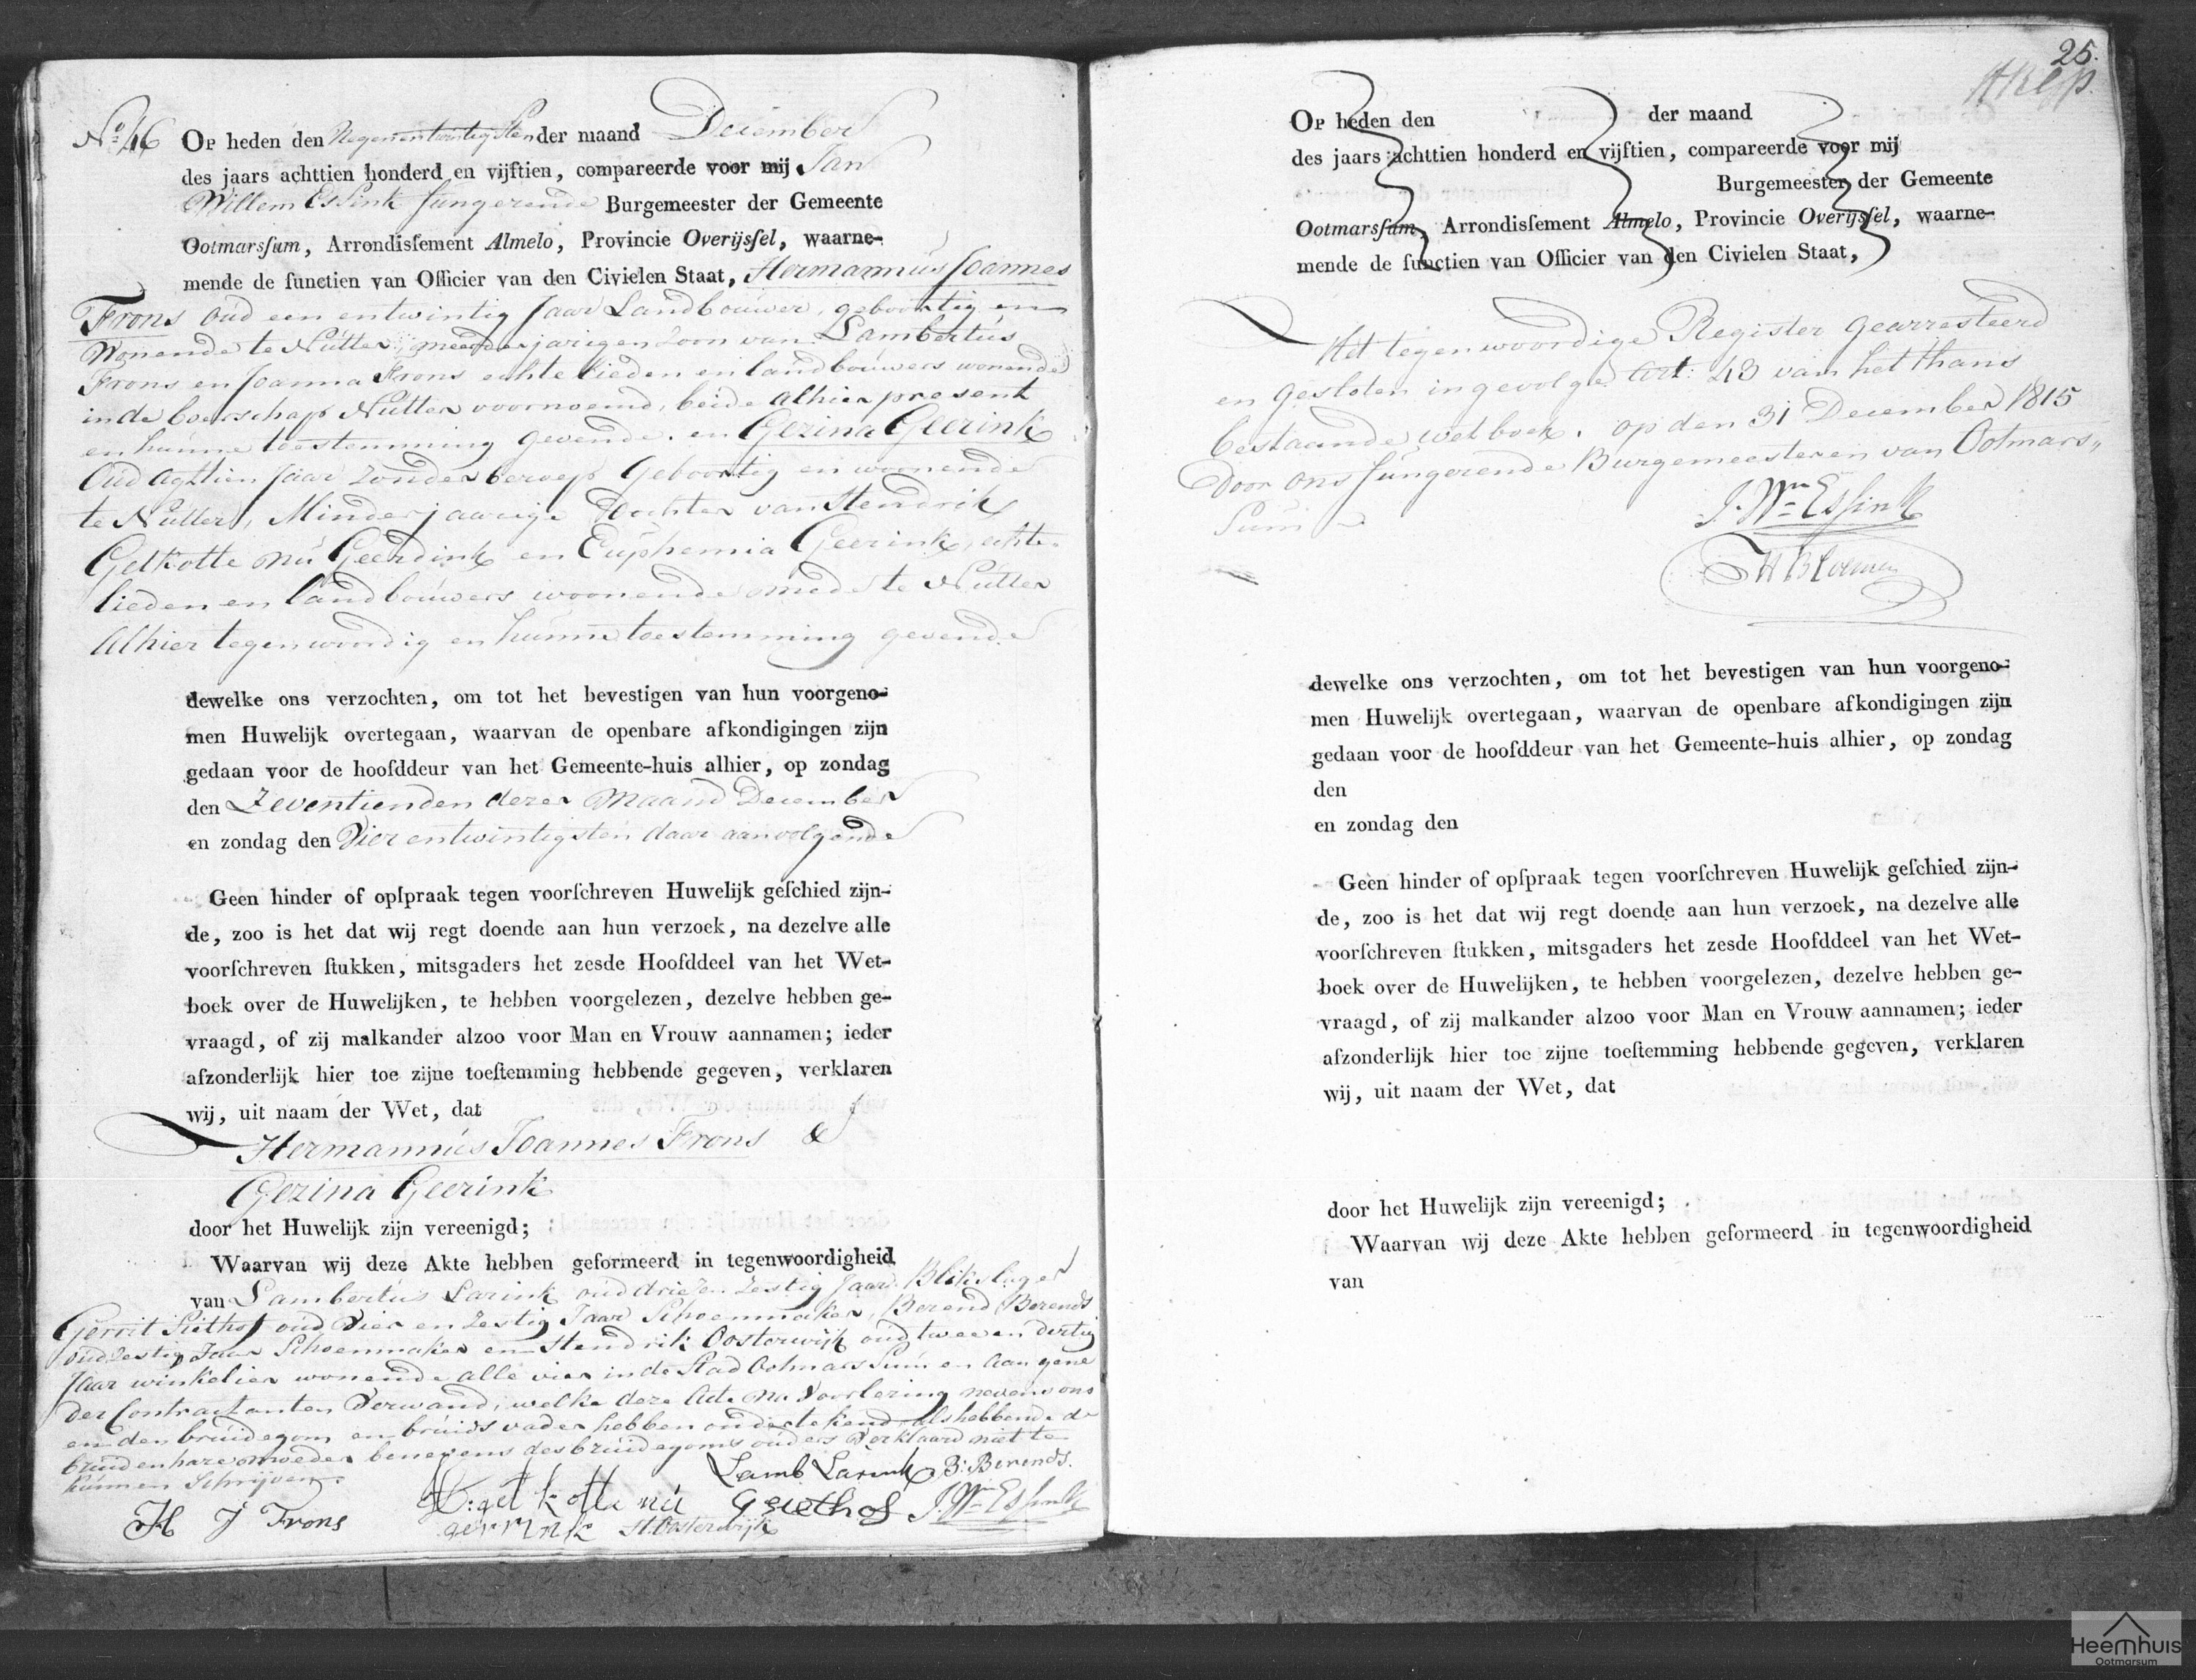 No. 46 Op heden den Negenentwintigsten der maand December
des jaars achttien honderd en vijftien, compareerde voor mij Jan
Willem Essink fungerende Burgemeester der Gemeente
Ootmarsſum, Arrondisſement Almelo, Provincie Overijsſel, waarne-
mende de functien van Officier van den Civielen Staat, Hermannus Joannes
Frons oud een entwintig Jaar Landbouwer, geboortig en
Wonende te Nutter, meerderjarigen Zoon van Lambertus
Frons en Joanna Frons echte lieden en landbouwers wonende
in de boerschap Nutter voornoemd, beide alhier present
en hunne toestemming gevende. en Gezina Geerink
Oud agttien Jaar Zonder beroep Geboortig en woonende
te Nutter, Minderjaarige Dochter van Hendrik
Gelkotte nu Geerdink en Euphemia Geerink, echte-
lieden en landbouwers woonende mede te Nutter
Alhier tegenwoordig en hunne toestemming gevende
dewelke ons verzochten, om tot het bevestigen van hun voorgeno-
men Huwelijk overtegaan, waarvan de openbare afkondigingen zijn
gedaan voor de hoofddeur van het Gemeente-huis alhier, op zondag
den Zeventienden dezer Maand December
en zondag den Vier entwintigsten daar aanvolgende
Geen hinder of opſpraak tegen voorſchreven Huwelijk geſchied zijn-
de, zoo is het dat wij regt doende aan hun verzoek, na dezelve alle
voorſchreven ſtukken, mitsgaders het zesde Hoofddeel van het Wet-
boek over de Huwelijken, te hebben voorgelezen, dezelve hebben ge-
vraagd, of zij malkander alzoo voor Man en Vrouw aannamen; ieder
afzonderlijk hier toe zijne toeſtemming hebbende gegeven, verklaren
wij, uit naam der Wet, dat
Hermannus Joannes Frons &
Gezina Geerink
door het Huwelijk zijn vereenigd;
Waarvan wij deze Akte hebben geformeerd in tegenwoordigheid
van Lambertus Larink oud drie en Zestig Jaar Blikslager
Gerrit Siethof oud Vier en Zestig Jaar Schoenmaker, Berend Berends
oud Zestig Jaar Schoenmaker en Hendrik Oosterwijk oud twee en dertig
Jaar winkelier wonende alle vier in de Stad Ootmarssum en aan gene
der Contractanten Verwand, welke deze Acte na Voorlezing nevens ons
en den bruidegom en bruids vader hebben ondertekend, als hebbende de
bruid en hare moeder benevens des bruidegoms ouders Verklaard niet te
kunnen Schrijven.
Lamb Larink B: Berends.
H J Frons H: gel kotte nu G Siethof J. Wm Essink
gerrink H. Oosterwijk
25.
Op heden den der maand
des jaars achttien honderd en vijftien, compareerde voor mij
Burgemeester der Gemeente
Ootmarsſum, Arrondisſement Almelo, Provincie Overijsſel, waarne-
mende de functien van Officier van den Civielen Staat,
Het tegenwoordige Register Gearresteerd
en gesloten ingevolge Art: 43 van het thans
bestaande wetboek. op den 31 December 1815
Door ons fungerende Burgemeesteren van Ootmars-
sum
J. Wm Essink
dewelke ons verzochten, om tot het bevestigen van hun voorgeno-
men Huwelijk overtegaan, waarvan de openbare afkondigingen zijn
gedaan voor de hoofddeur van het Gemeente-huis alhier, op zondag
den
en zondag den
Geen hinder of opſpraak tegen voorſchreven Huwelijk geſchied zijn-
de, zoo is het dat wij regt doende aan hun verzoek, na dezelve alle
voorſchreven ſtukken, mitsgaders het zesde Hoofddeel van het Wet-
boek over de Huwelijken, te hebben voorgelezen, dezelve hebben ge-
vraagd, of zij malkander alzoo voor Man en Vrouw aannamen; ieder
afzonderlijk hier toe zijne toeſtemming hebbende gegeven, verklaren
wij, uit naam der Wet, dat
door het Huwelijk zijn vereenigd;
Waarvan wij deze Akte hebben geformeerd in tegenwoordigheid
van
Heemhuis
Ootmarsum